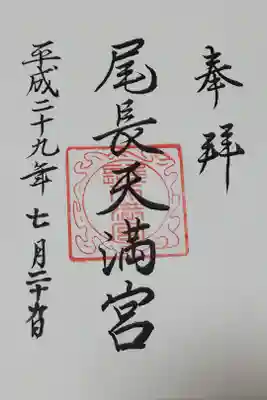 奉拝
尾長天満宮
平成二十九年七月二十九日